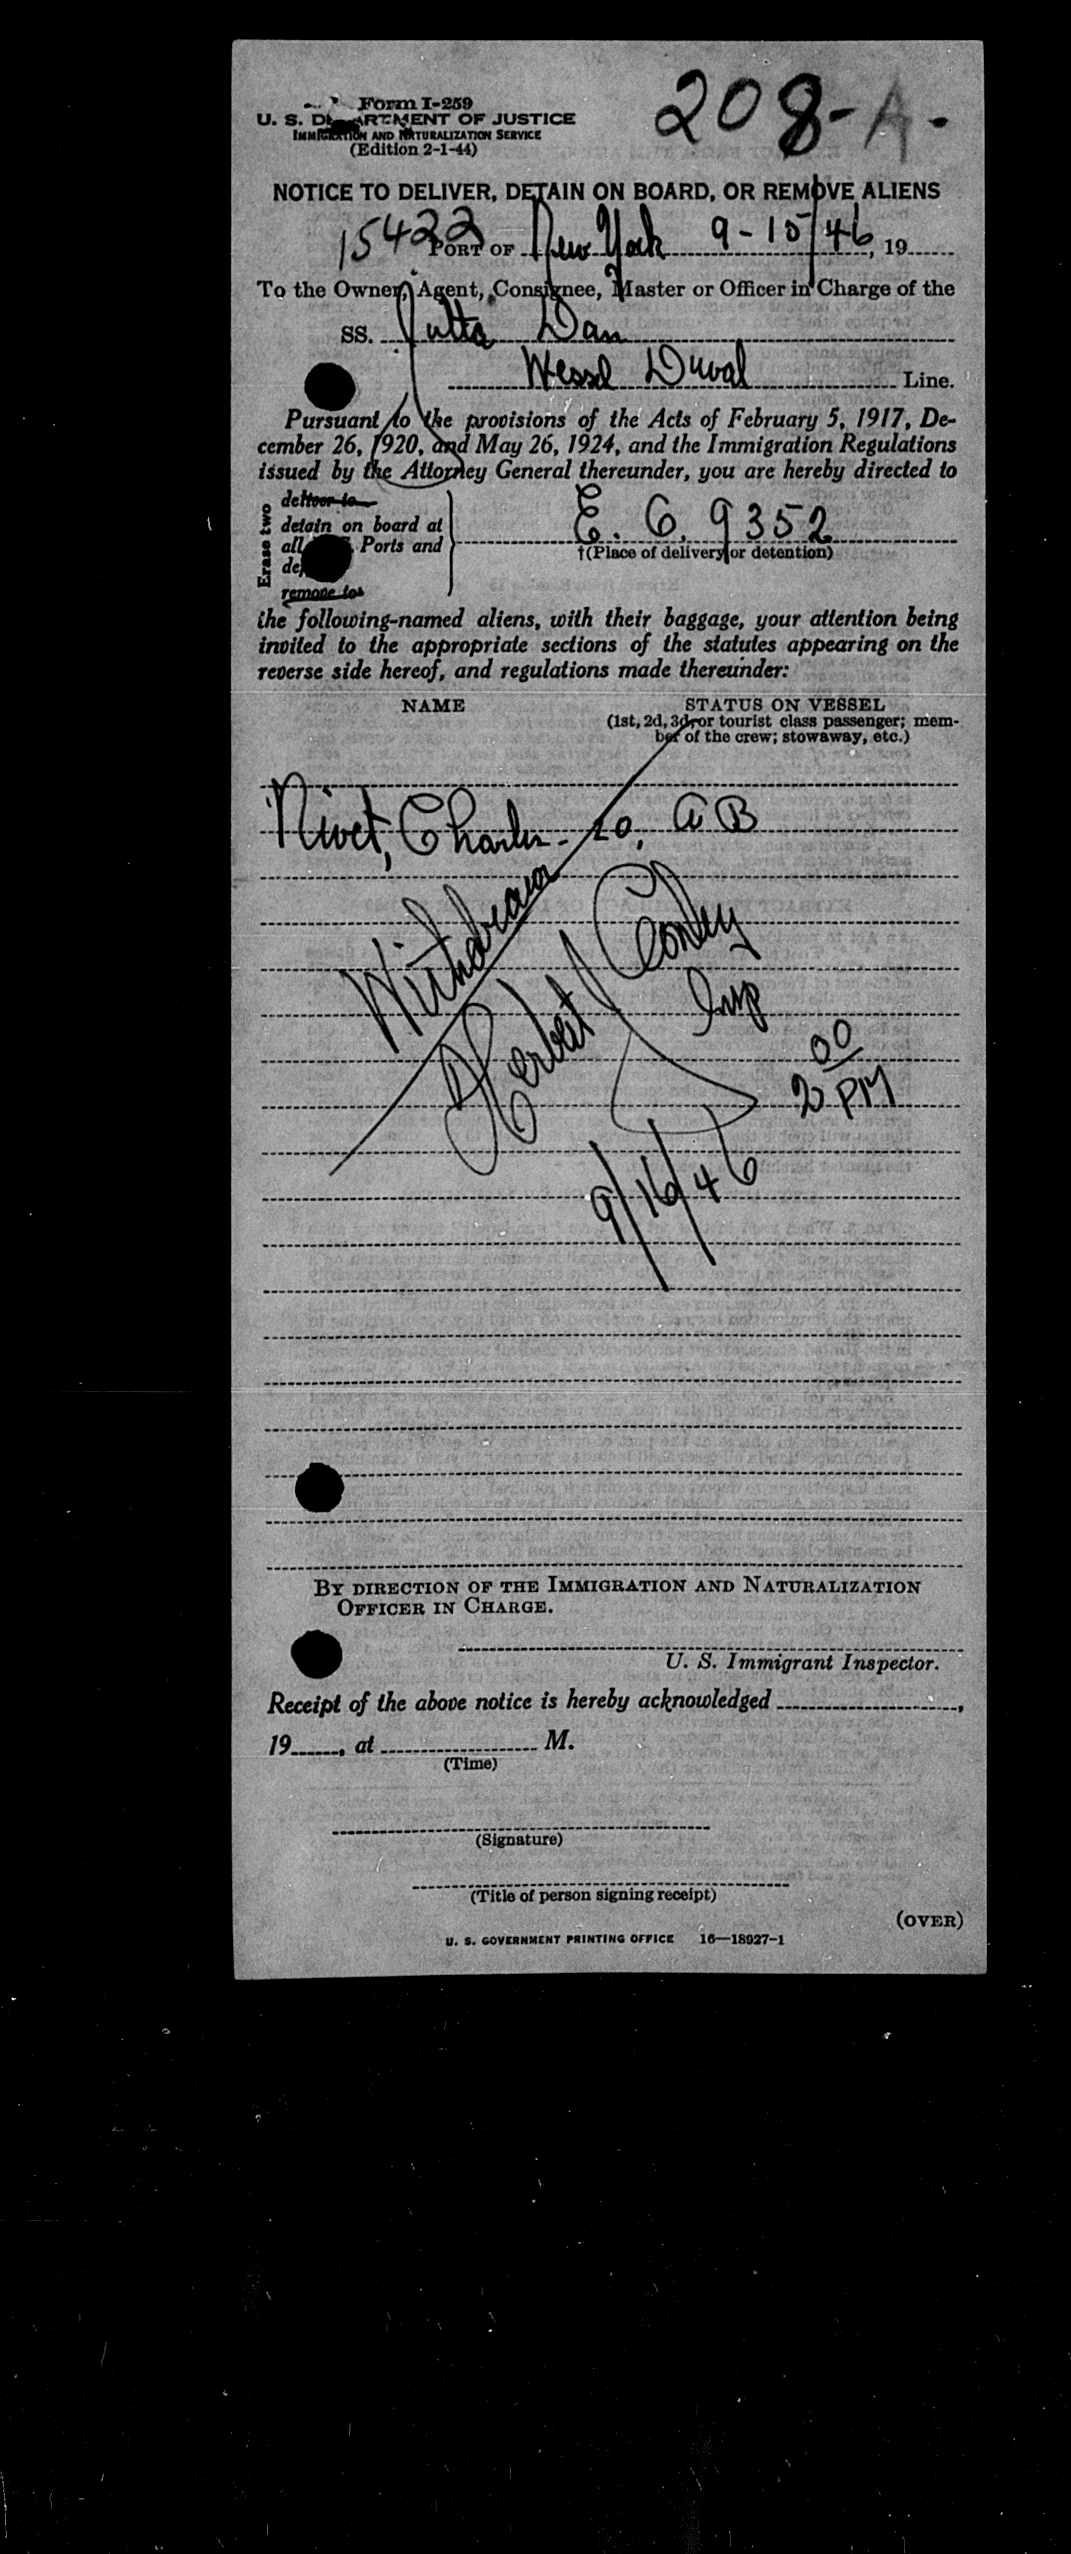 208-A.
Form I-259
U. S. DEPARTMENT OF JUSTICE
IMMIGRATION AND NATURALIZATION SERVICE
(Edition 2-1-44)
NOTICE TO DELIVER, DETAIN ON BOARD, OR REMOVE ALIENS
15422 PORT OF New York 9-15/46, 19
To the Owner, Agent, Consignee, Master or Officer in Charge of the
SS. Jutta Dan
Wessel Duval Line.
Pursuant to the provisions of the Acts of February 5, 1917, De-
cember 26, 1920, and May 26, 1924, and the Immigration Regulations
issued by the Attorney General thereunder, you are hereby directed to
Erase two
deliver to
detain on board at
all Ports and
remove to
E. C. 9352
†(Place of delivery or detention)
the following-named aliens, with their baggage, your attention being
invited to the appropriate sections of the statutes appearing on the
reverse side hereof, and regulations made thereunder:
NAME STATUS ON VESSEL
(1st, 2d, 3d, or tourist class passenger; mem-
ber of the crew; stowaway, etc.)
Nivet, Charles - 20, AB
Withdrawn
Herbert J Conley
Insp
2 00 PM
9/16/46
BY DIRECTION OF THE IMMIGRATION AND NATURALIZATION
OFFICER IN CHARGE.
U. S. Immigrant Inspector.
Receipt of the above notice is hereby acknowledged ,
19 , at M.
(Time)
(Signature)
(Title of person signing receipt)
(OVER)
U. S. GOVERNMENT PRINTING OFFICE 16—18927-1